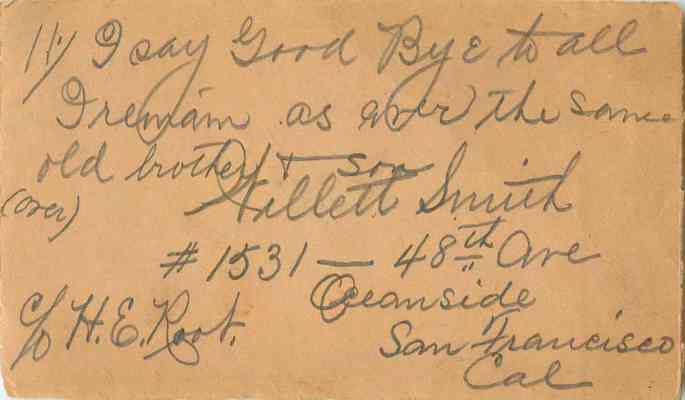 11.) I say Good Bye to all
I remain as ever the same
old brother & son
(over) Willett Smith
#1531 — 48th Ave
Oceanside
c/o H.E. Root.
San Francisco
Cal